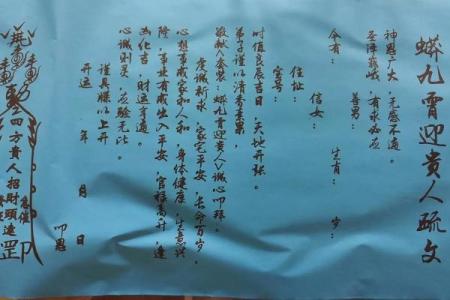 蟒九霄迎貴人疏文
神恩广大，无感不通。
圣泽巍峨，有求必应
今有：
善男：
信女：
生有：
岁：
住址：
宝号：
时值良辰吉日，天地开张。
弟子谨以清香素果，
敬献金箔：蟒九霄迎贵人，诚心叩拜。
虔诚祈求，家宅平安，长命百岁，
心想事成家和人和，身体健康，生意兴
隆，事业有成出入平安，官禄高升，逢
凶化吉，财运亨通。
心诚则灵，应验无比。
谨具牒以上升
开运
年
月
日
叩恩
四方貴人招財順達